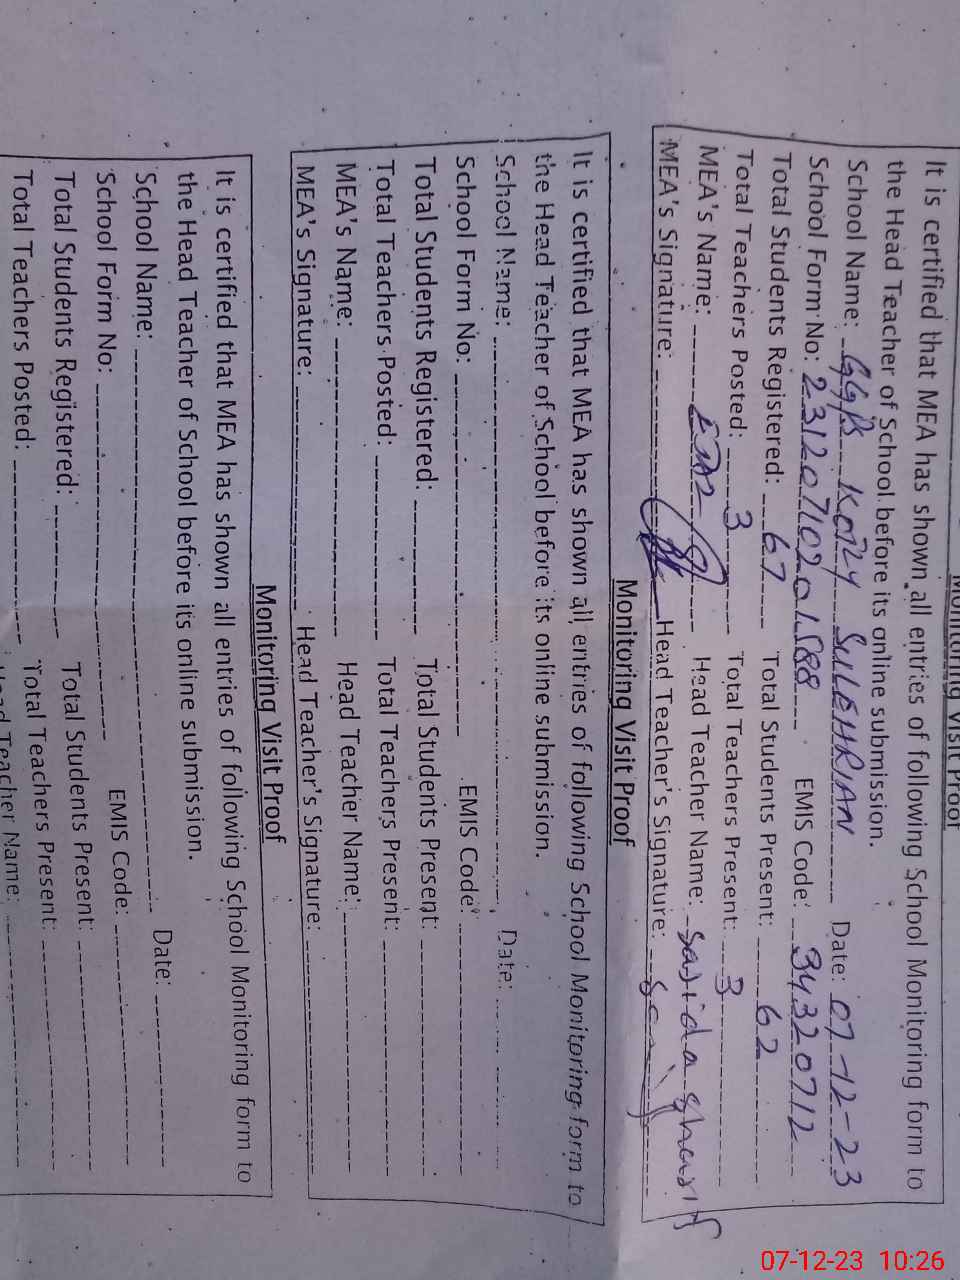 Monitoring Visit Proof
It is certified that MEA has shown all entries of following School Monitoring form to
the Head Teacher of School before its online submission.
School Name: GGPS KOTLY SULEHRIAN Date: 07-12-23
School Form No: 23120710201588 EMIS Code: 34320712
Total Students Registered: 67 Total Students Present: 62
Total Teachers Posted: 3 Total Teachers Present: 3
MEA's Name: Head Teacher Name: Sajida Sharif
MEA's Signature: Head Teacher's Signature:
Monitoring Visit Proof
It is certified that MEA has shown all entries of following School Monitoring form to
the Head Teacher of School before its online submission.
School Name: Date:
School Form No: EMIS Code:
Total Students Registered: Total Students Present:
Total Teachers Posted: Total Teachers Present:
MEA's Name: Head Teacher Name:
MEA's Signature: Head Teacher's Signature:
Monitoring Visit Proof
It is certified that MEA has shown all entries of following School Monitoring form to
the Head Teacher of School before its online submission.
School Name: Date:
School Form No: EMIS Code:
Total Students Registered: Total Students Present:
Total Teachers Posted: Total Teachers Present:
Head Teacher Name:
07-12-23 10:26